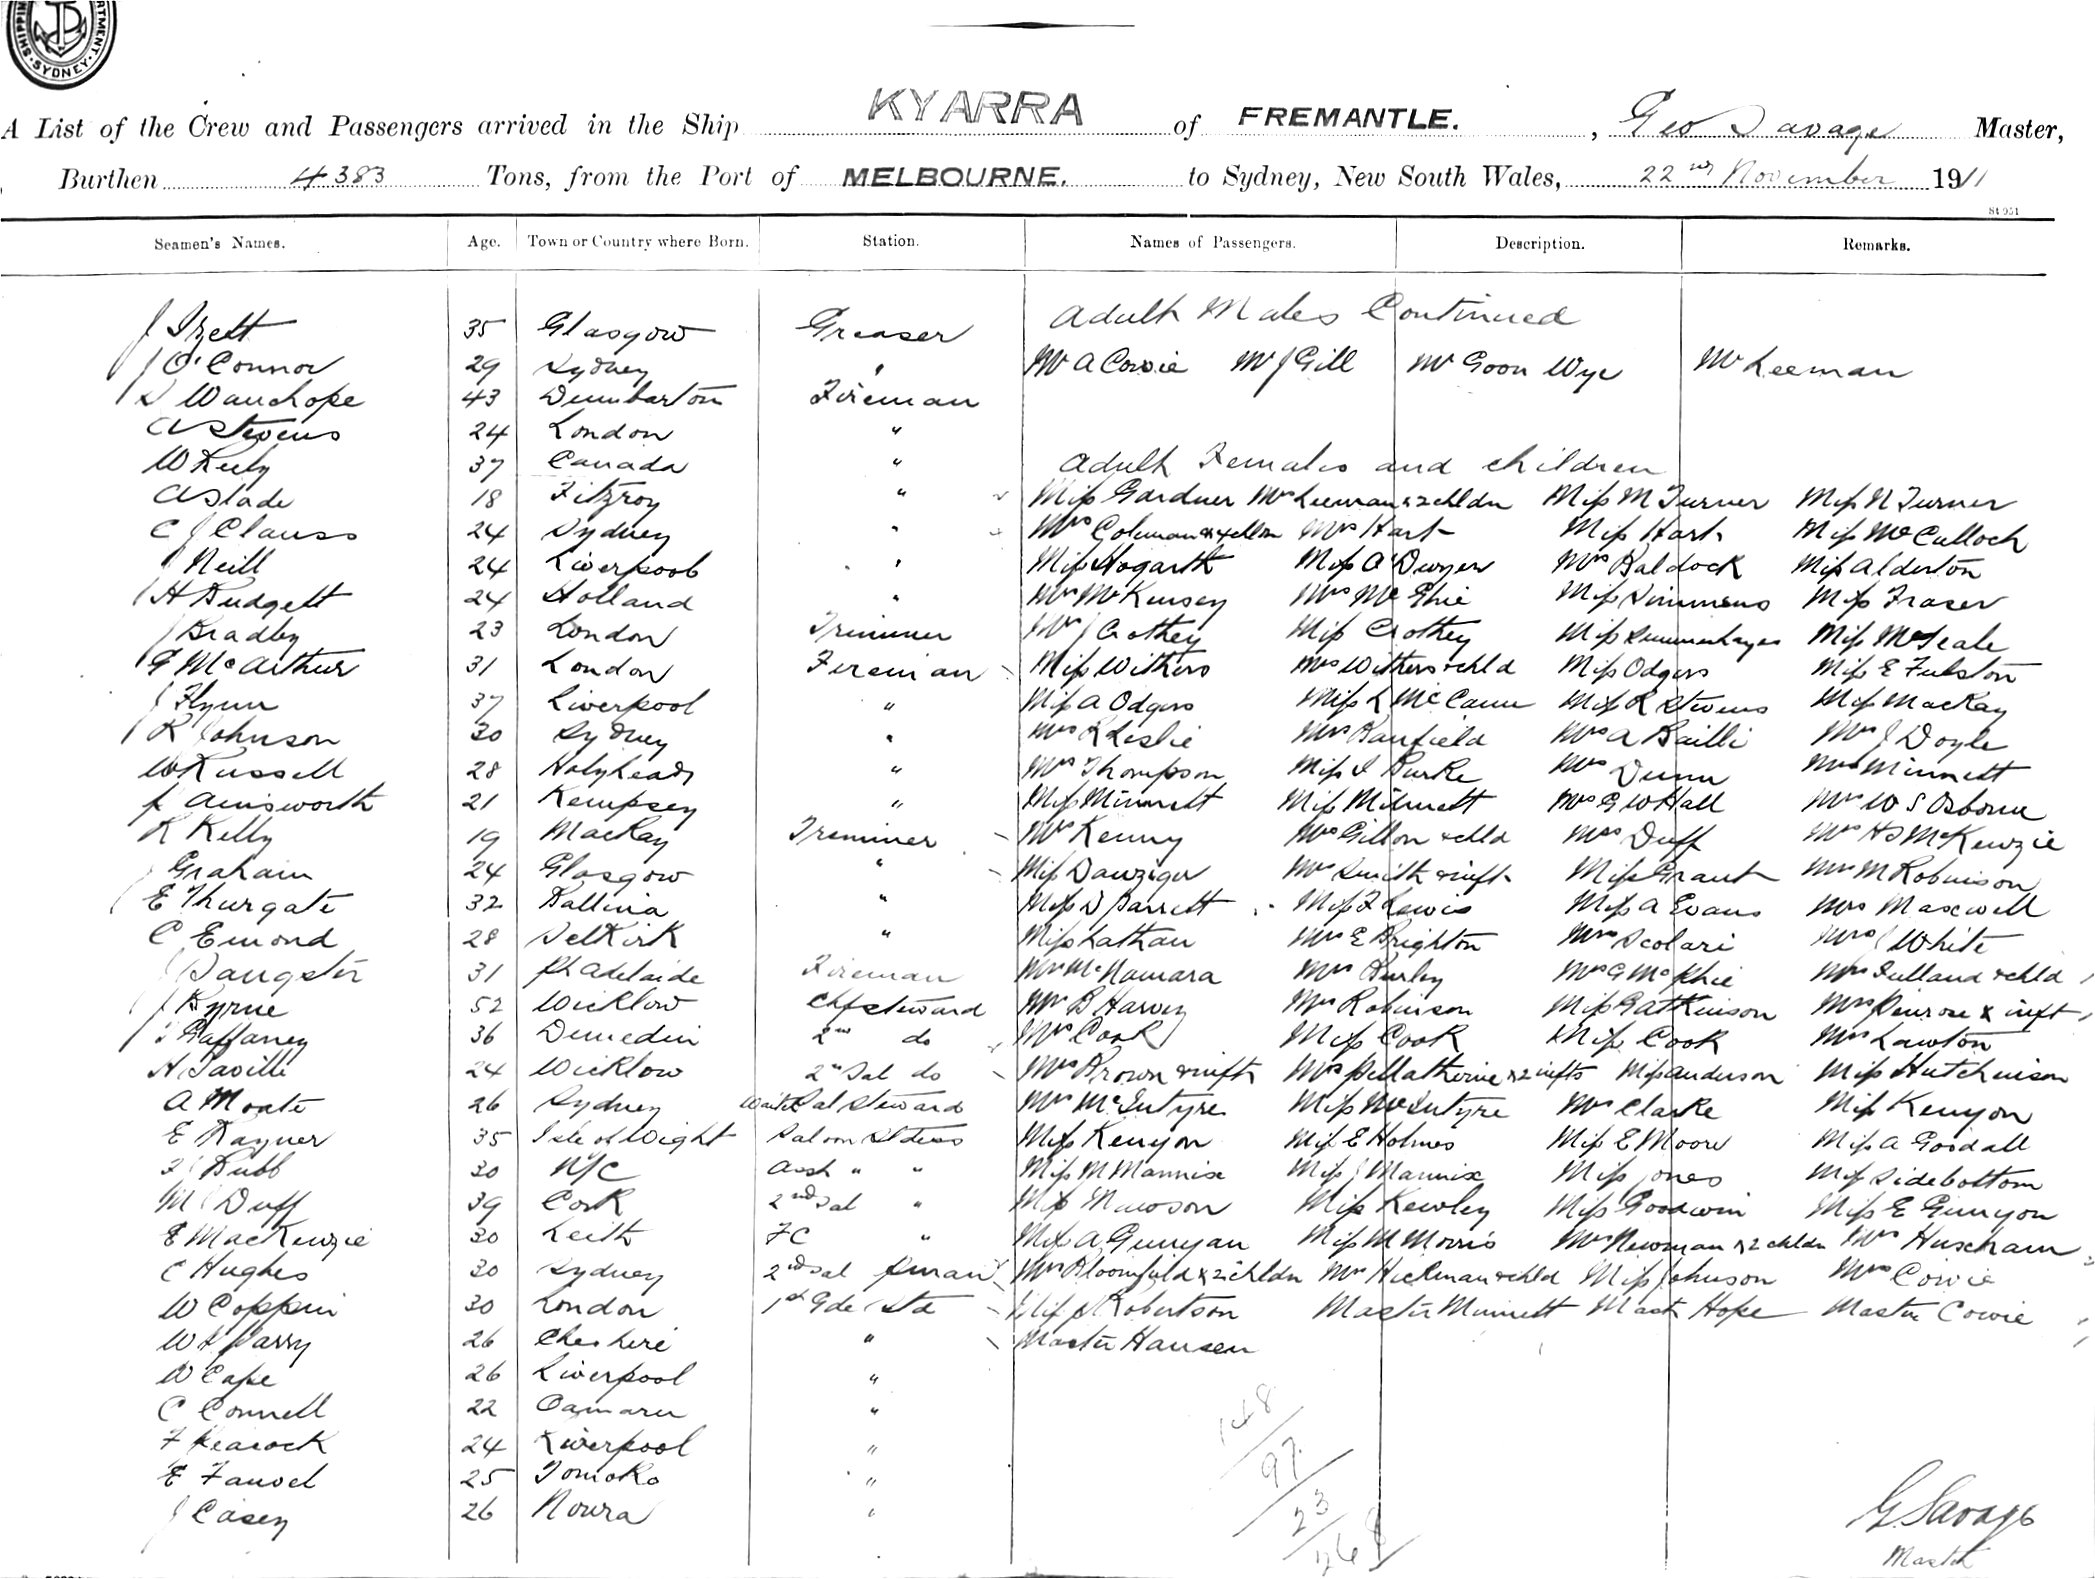 SHIPPING DEPARTMENT. SYDNEY.
A List of the Crew and Passengers arrived in the Ship KYARRA of FREMANTLE. , Geo Savage Master,
Burthen 4383 Tons, from the Port of MELBOURNE. to Sydney, New South Wales, 22nd November 1911
St 951
Seamen's Names. Age. Town or Country where Born. Station. Names of Passengers. Description. Remarks.
Adult Males Continued
J 35 Glasgow Greaser
J O'Connor 29 Sydney " Mr A Cowie Mr J Gill Mr Goon Wye Mr Leeman
D Wauchope 43 Dumbarton Fireman
A Stevens 24 London "
W Keely 37 Canada " Adult Females and children
A Slade 18 Fitzroy " Miss Gardner Mrs Leeman & 2 chldn Miss M Turner Miss N Turner
C J Clauss 24 Sydney " Mrs Coleman & 4 chldn Mrs Hart Miss Hart Miss McCulloch
J Neill 24 Liverpool " Miss Hogarth Miss A Dwyer Mrs Baldock Miss Alderton
H Budgett 24 Holland " Mrs McKinsey Mrs McGhie Miss Simmens Miss Fraser
J Bradby 23 London Trimmer Mrs J Crothey Miss Crothey Miss Summerhayes Miss
G McArthur 31 London Fireman Miss Withers Mrs Withers & chld Miss Odgers Miss E Fulston
J Flynn 37 Liverpool " Miss A Odgers Miss L McCann Miss R Stevens Miss MacKay
R Johnson 30 Sydney " Mrs R Leslie Mrs Banfield Mrs A Bailli Mrs J Doyle
W Russell 28 Holyhead " Mrs Thompson Miss I Burke Mrs Dunn Mrs Minnett
J Ainsworth 21 Kempsey " Miss Minnett Miss Minnett Mrs G W Hall Mrs W S Osborne
R Kelly 19 MacKay Trimmer Mrs Kenny Mrs Gillon & chld Mrs Duff Mrs H S McKenzie
J Graham 24 Glasgow " Miss Danziger Mrs Smith & inft Miss Grant Mrs M Robinson
E Thurgate 32 Ballina " Miss D Barrett Miss F Lewis Miss A Evans Mrs Maxwell
C Emond 28 Selkirk " Miss Lathan Mrs E Brighton Mrs Scolari Mrs J White
J Sangster 31 Pt Adelaide Fireman Mrs McNamara Mrs Burley Mrs G McPhie Mrs & chld
J Byrne 52 Wicklow Chf steward Mrs B Harvey Mrs Robinson Miss G Atkinson Mrs Penrose & inft
T Gaffaney 36 Dunedin 2nd do Mrs Cook Miss Cook Miss Cook Mrs Lawton
H Saville 24 Wicklow 2nd Sal do Mrs Brown & inft Mrs & 2 infts Miss Anderson Miss Hutchinson
A Moate 26 Sydney Sal Steward Mrs McIntyre Miss McIntyre Mrs Clarke Miss Kenyon
E Rayner 35 Isle of Wight Saloon Stdess Miss Kenyon Miss E Holmes Miss E Moore Miss A Goodall
F J Bubb 30 N/C Asst " " Miss M Mannix Miss J Mannix Miss Jones Miss Sidebottom
M J Duff 39 Cork 2nd Sal " Miss Mawson Miss Kewley Miss Goodwin Miss E Gunyon
E MacKenzie 30 Leith FC " Miss A Gunyan Miss M Morris Mrs Newman & 2 chldn Mrs Huxham
C Hughes 30 Sydney 2nd Sal Mrs Bloomfield & 2 chldn Mrs Hickman & chld Miss Johnson Mrs Cowie
W Coppin 30 London 1st Gde Std Miss Robertson Master Minnett Mast Hope Master Cowie
W L Parry 26 Cheshire " Master Hansen
W Cape 26 Liverpool "
C Connell 22 Oamaru "
F Peacock 24 Liverpool "
E 25 "
J Casey 26 Noura "
148
97
23
268
G Savage
Master